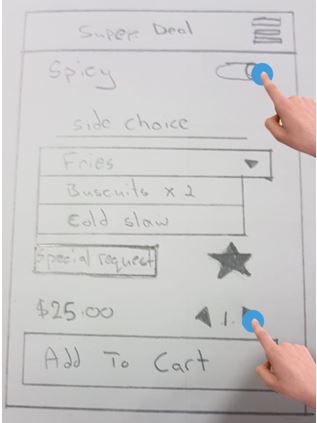 Super Deal
Spicy
side choice
Fries
Buscuits x 2
Cold slaw
Special request
$25.00 1.
Add To Cart